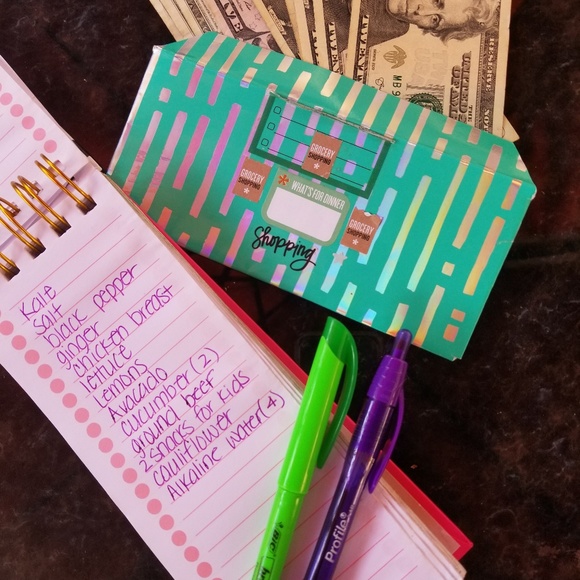 MB
RESERVE
GROCERY
SHOPPING
GROCERY
SHOPPING
WHAT'S FOR DINNER
GROCERY
SHOPPING
Shopping
Kale
salt
black pepper
ginger
chicken breast
lettuce
Lemons
Avocado
cucumber(2)
ground beef
2 snacks for kids
cauliflower
Alkaline water(4)
BIC
Profile